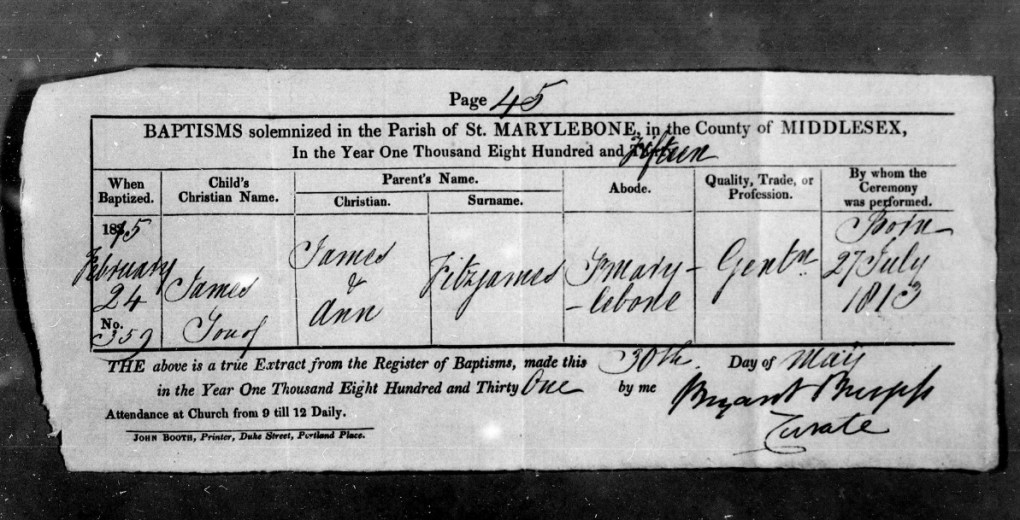 Page 45
BAPTISMS solemnized in the Parish of St. MARYLEBONE, in the County of MIDDLESEX,
In the Year One Thousand Eight Hundred and Fifteen
When Baptized.
Child's Christian Name.
Parent's Name.
Christian.
Surname.
Abode.
Quality, Trade, or Profession.
By whom the Ceremony was performed.
1815
February
24
No.
359
James
Son of
James
&
Ann
Fitzjames
Smary-
-lebone
Gentn
Born
27 July
1813
THE above is a true Extract from the Register of Baptisms, made this 30th. Day of May
in the Year One Thousand Eight Hundred and Thirty One by me Bryant Burgess
Attendance at Church from 9 till 12 Daily.
Curate
JOHN BOOTH, Printer, Duke Street, Portland Place.